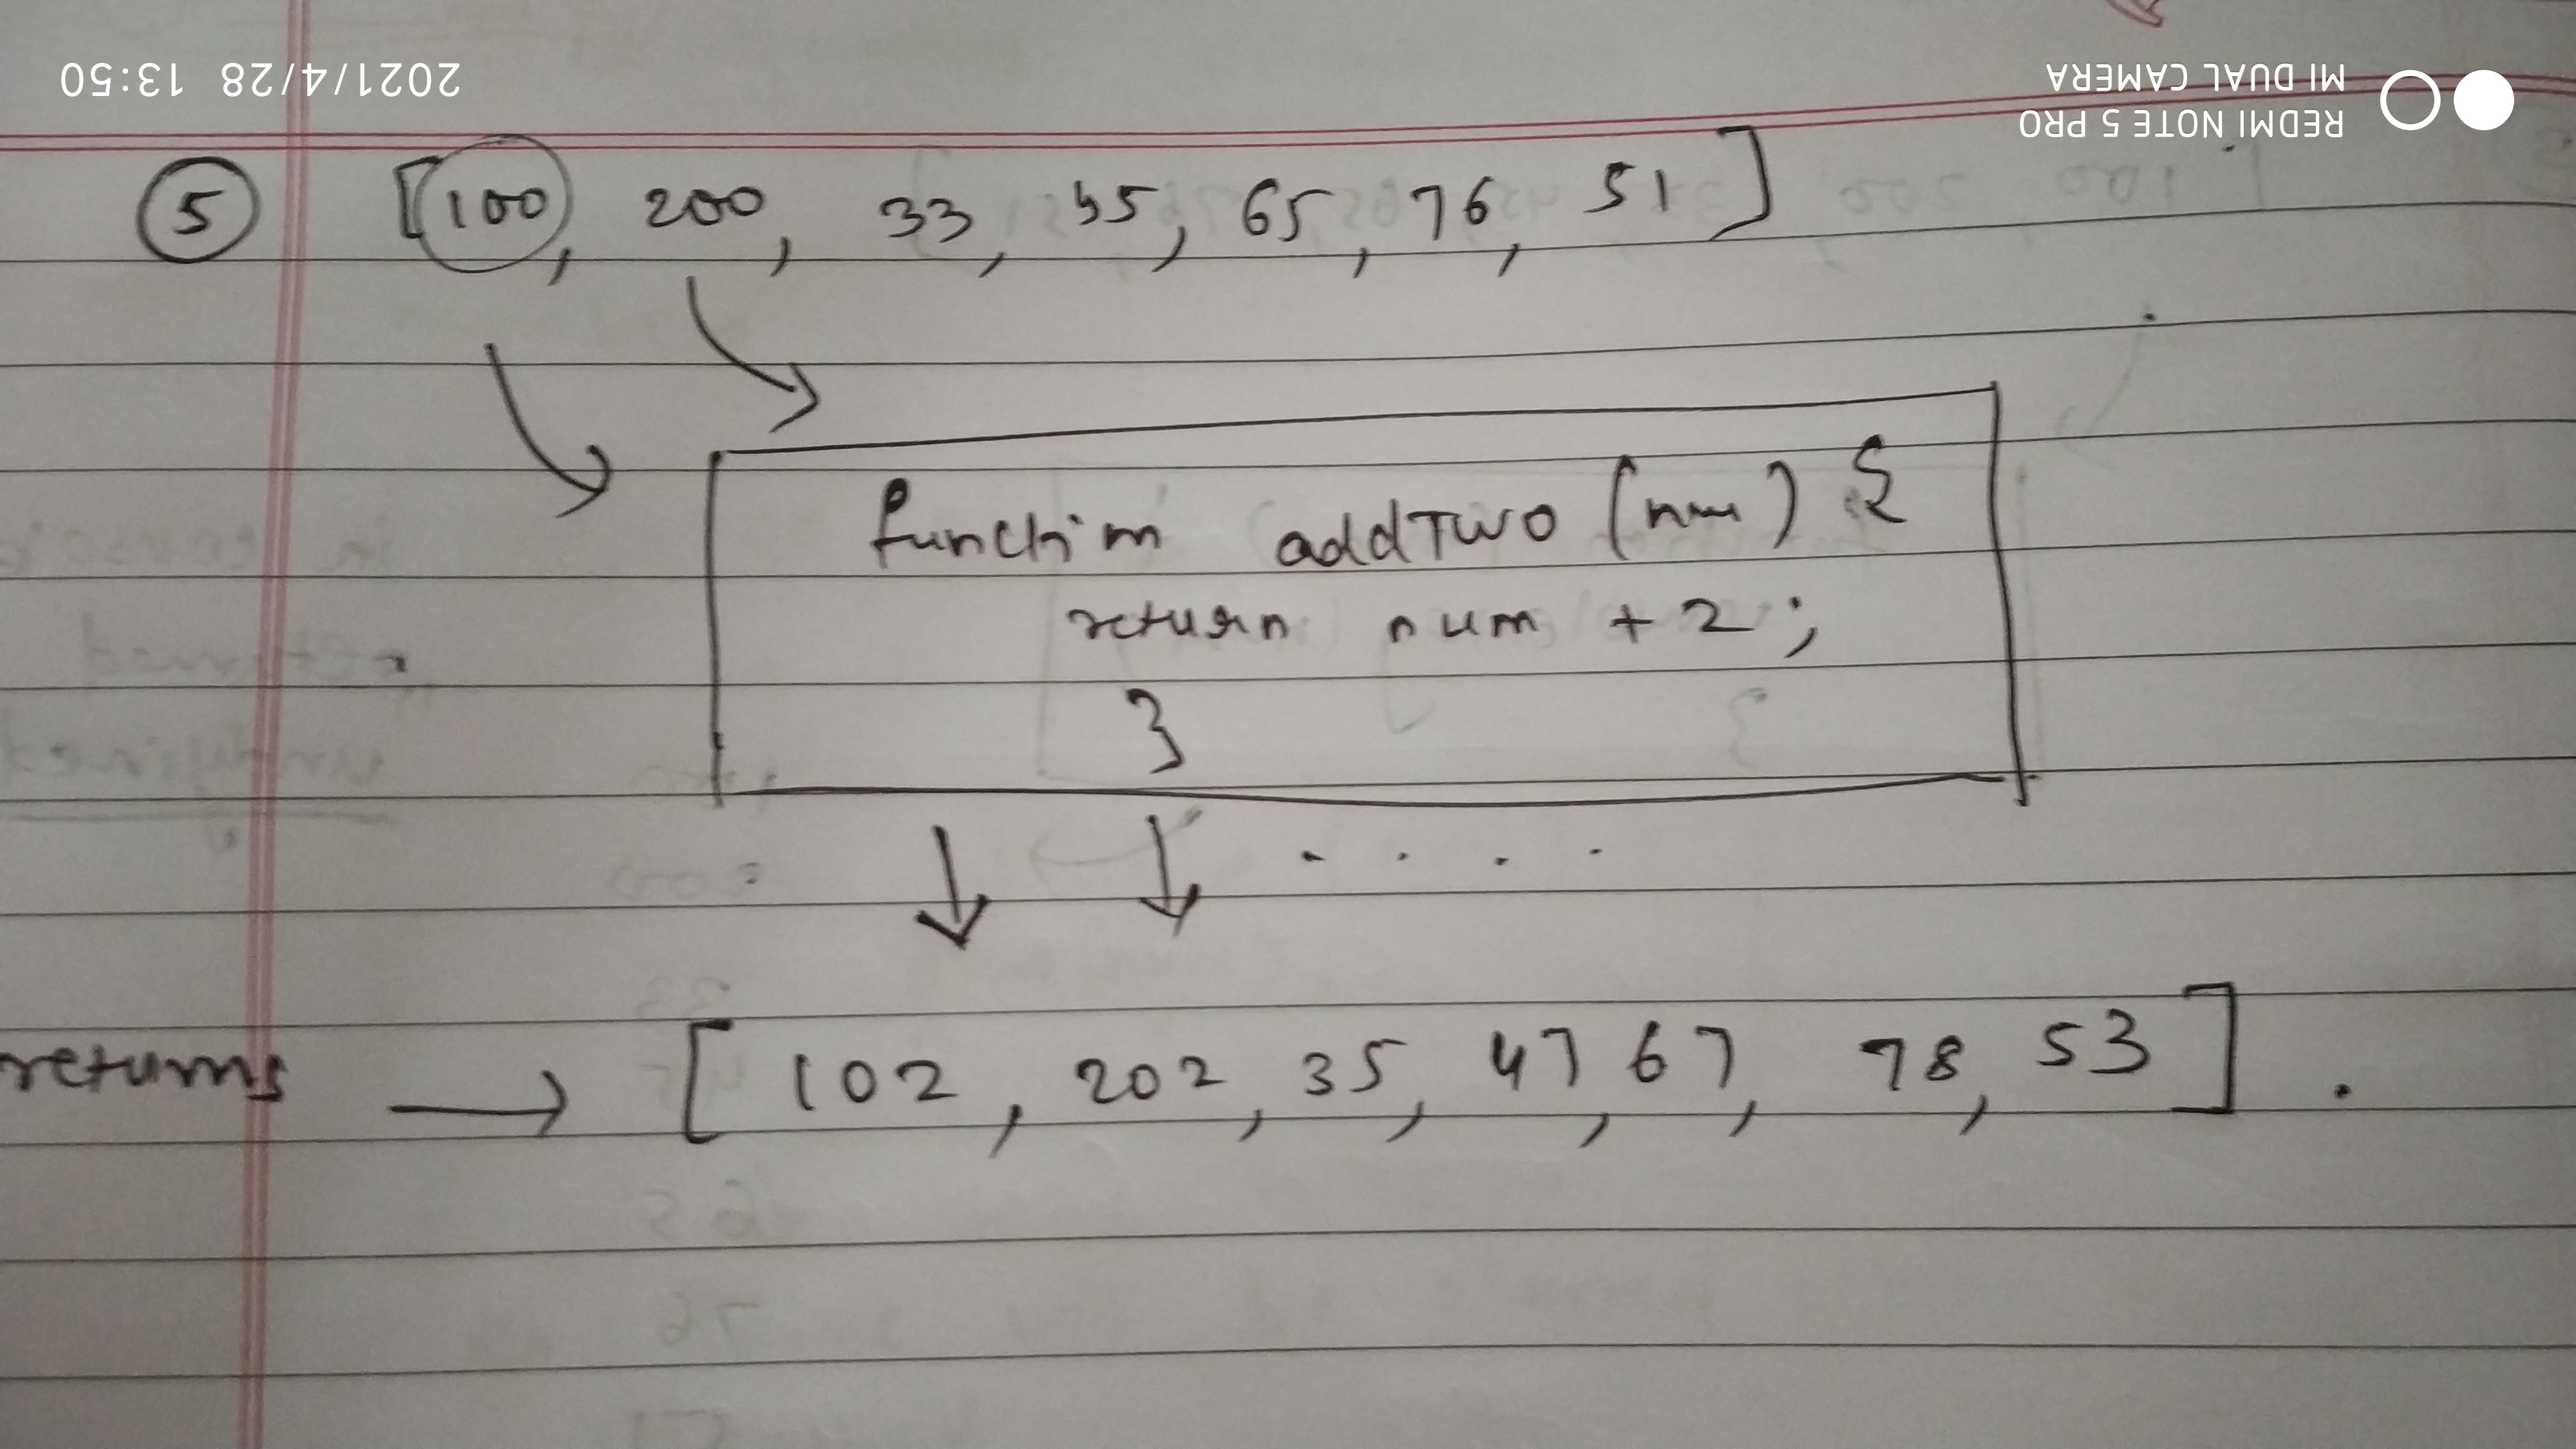 2021/4/28 13:50
REDMI NOTE 5 PRO
MI DUAL CAMERA
5 [100, 200, 33, 45, 65, 76, 51]
function addTwo (num) {
return num + 2;
}
. . . .
returns → [102, 202, 35, 47, 67, 78, 53].